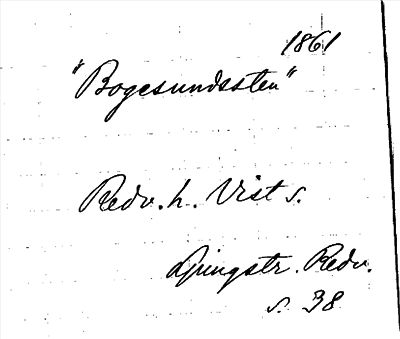 1861
"Bogesundssten"
Redv. h. Vist s.
Ljungstr. Redv.
s. 38